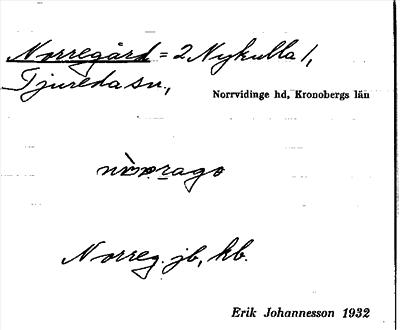 Norregård = 2 Nykulla 1,
Tjureda sn.,
Norrvidinge hd, Kronobergs län
Norreg. jb, kb.
Erik Johannesson 1932